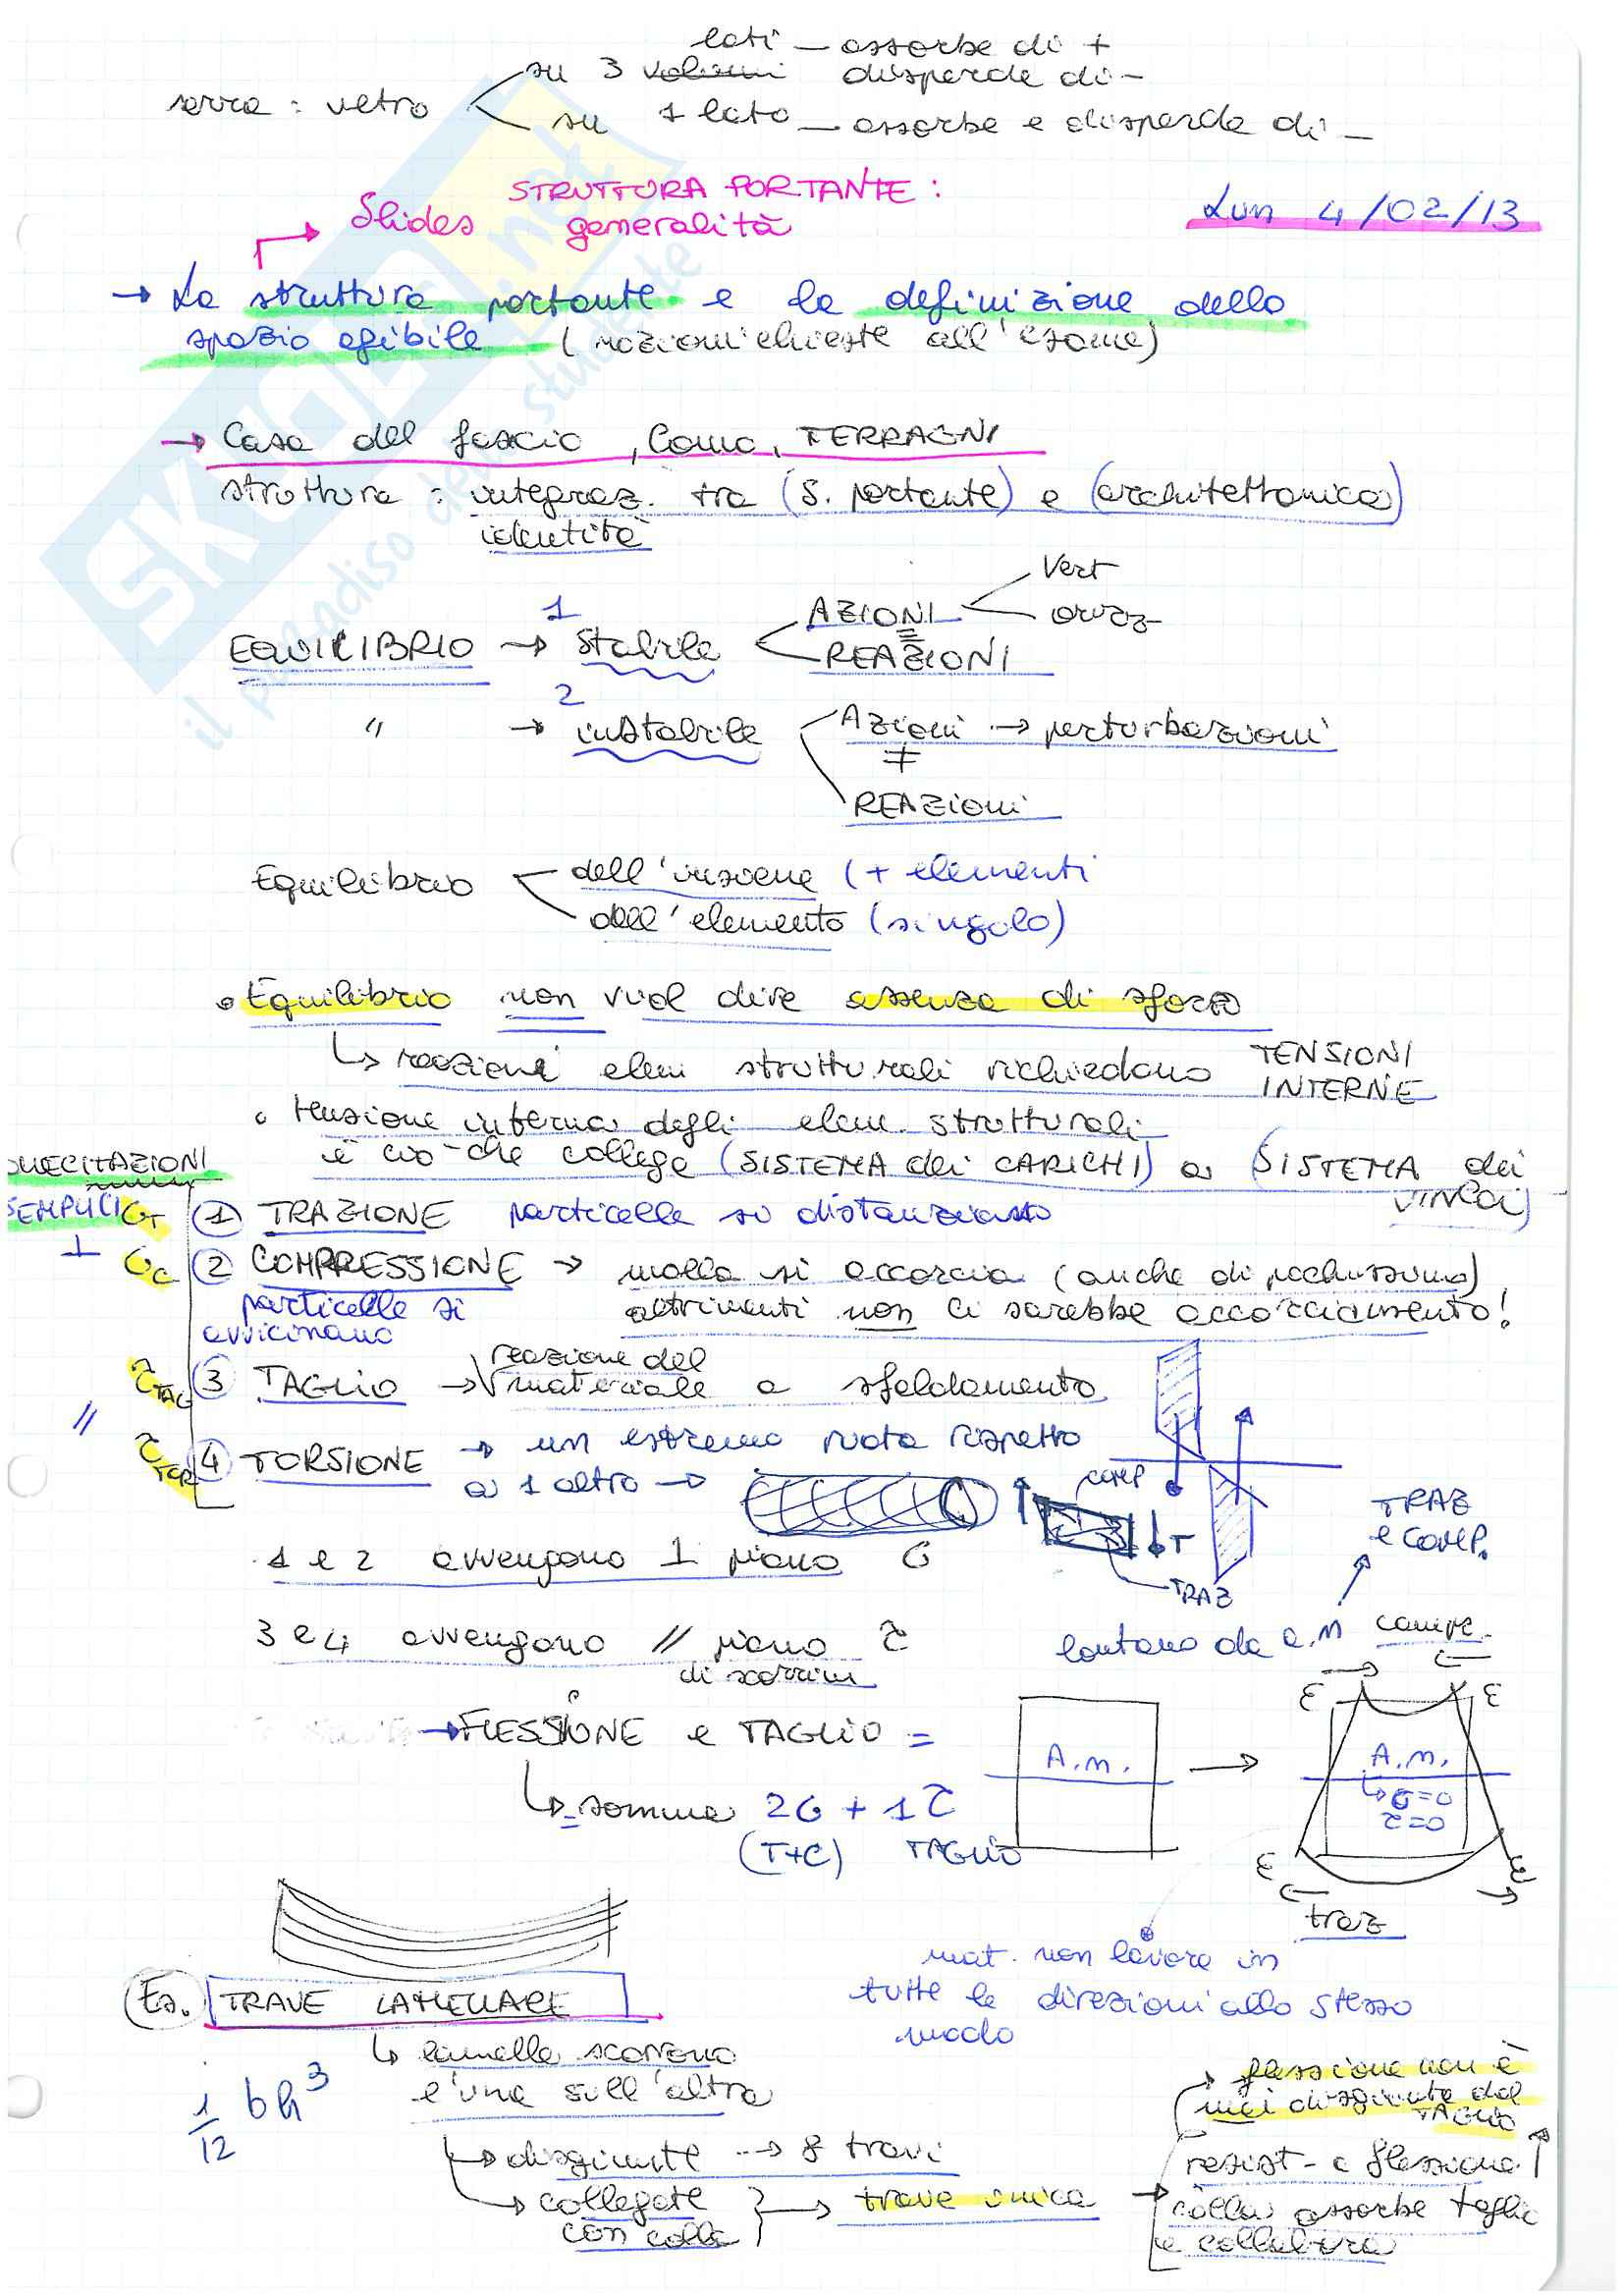 lati — assorbe di +
serra : vetro su 3 volumi disperde di -
su 1 lato — assorbe e disperde di -
Slides STRUTTURA PORTANTE :
generalità
Lun 4/02/13
→ La struttura portante e la definizione dello
spazio agibile (nozioni chieste all'esame)
→ Casa del fascio, Como, TERRAGNI
struttura : integraz. tra (S. portante) e (architettonica)
identità
EQUILIBRIO → 1 Stabile
AZIONI
Vert
orizz
=
REAZIONI
" → 2 instabile
Azioni → perturbazioni
≠
REAZIONI
Equilibrio
dell'insieme (+ elementi
dell'elemento (singolo)
• Equilibrio non vuol dire assenza di sforzo
↳ reazioni elem strutturali richiedono TENSIONI
INTERNE
• tensione interna degli elem. strutturali
è ciò che collega (SISTEMA dei CARICHI) a (SISTEMA dei
VINCOLI)
SOLLECITAZIONI
SEMPLICI
σT ① TRAZIONE particelle si distanziano
⊥ σC ② COMPRESSIONE → molla si accorcia (anche di pochissimo)
particelle si
avvicinano
altrimenti non ci sarebbe accorciamento!
τTAG ③ TAGLIO → reazione del
materiale a sfaldamento
// τTOR ④ TORSIONE → un estremo ruota rispetto
a 1 altro →
COMP
T
TRAZ
TRAZ
e COMP.
1 e 2 avvengono ⊥ piano σ
3 e 4 avvengono // piano τ
di scorrim
lontano da a.n
compr.
→ FLESSIONE e TAGLIO =
↳ = somma 2σ + 1τ
(T+C) TAGLIO
A.n.
→
ε ε
A.n.
↳ σ=0
τ=0
ε ε
traz
mat. non lavora in
tutte le direzioni allo stesso
modo
Es. TRAVE LAMELLARE
↳ lamelle scorrono
l'una sull'altra
1/12 bh³
→ disgiunte → 8 travi
→ collegate
con colla
→ trave unica
→ flessione non è
mai disgiunta dal
TAGLIO
resist - a flessione
colla assorbe taglio
e collabora
SKUOLA.net
il paradiso dello studente